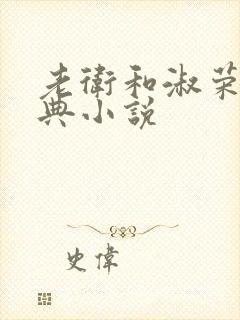 老衛和淑荣
典小説
史偉